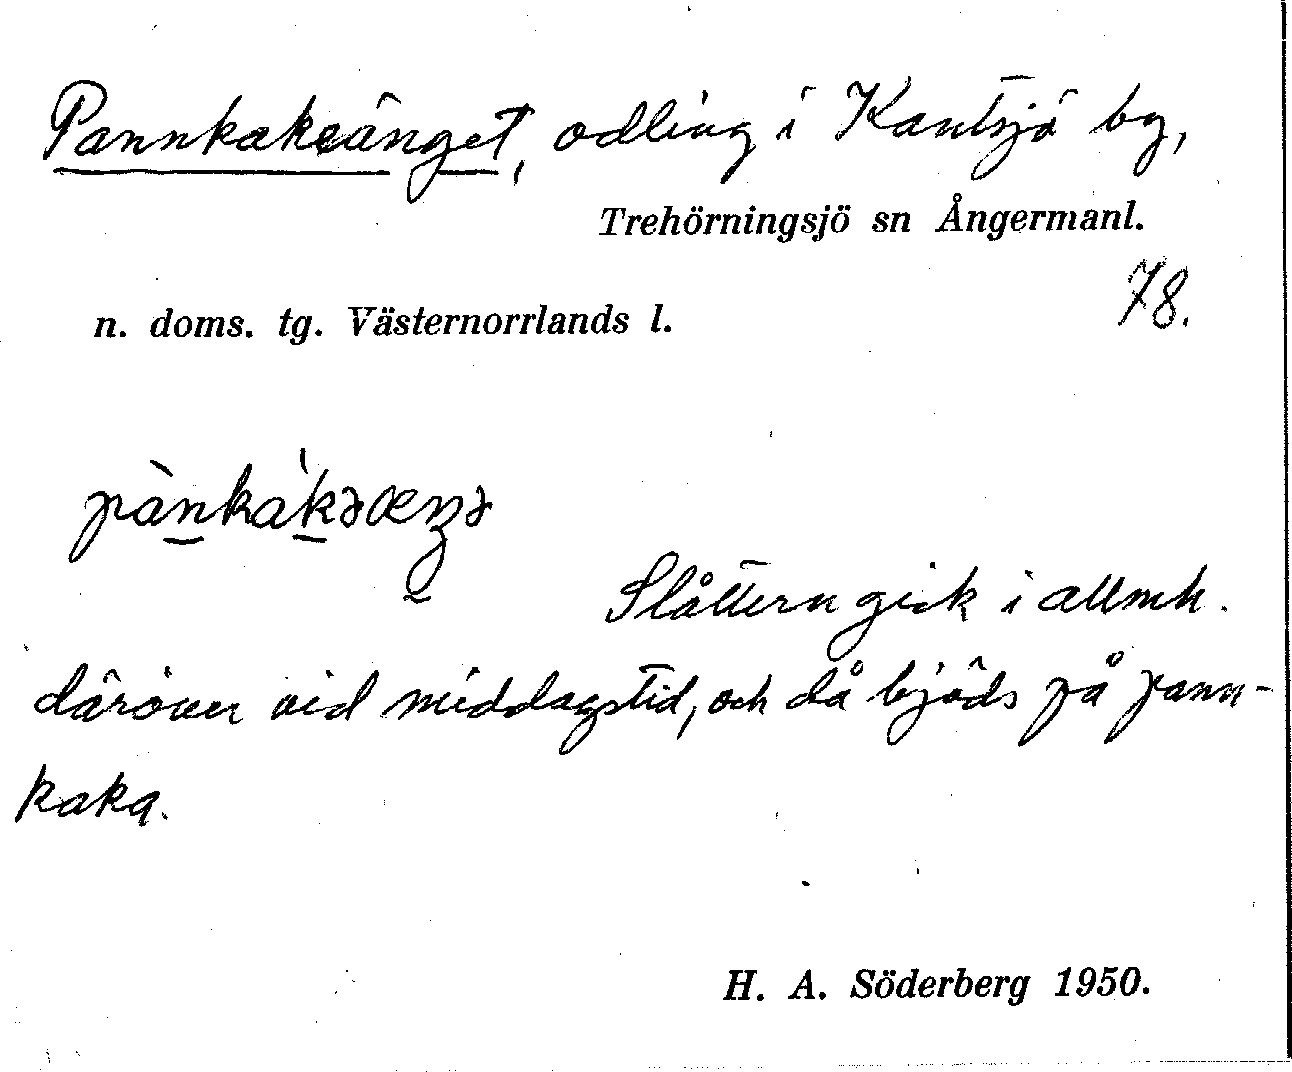 Pannkakeänget, odling i Kantsjö by,
Trehörningsjö sn Ångermanl.
78.
n. doms. tg. Västernorrlands l.
pànkàkəæŋə
Slåttern gick i allmh.
däröver vid middagstid, och då bjöds på pann-
kaka.
H. A. Söderberg 1950.